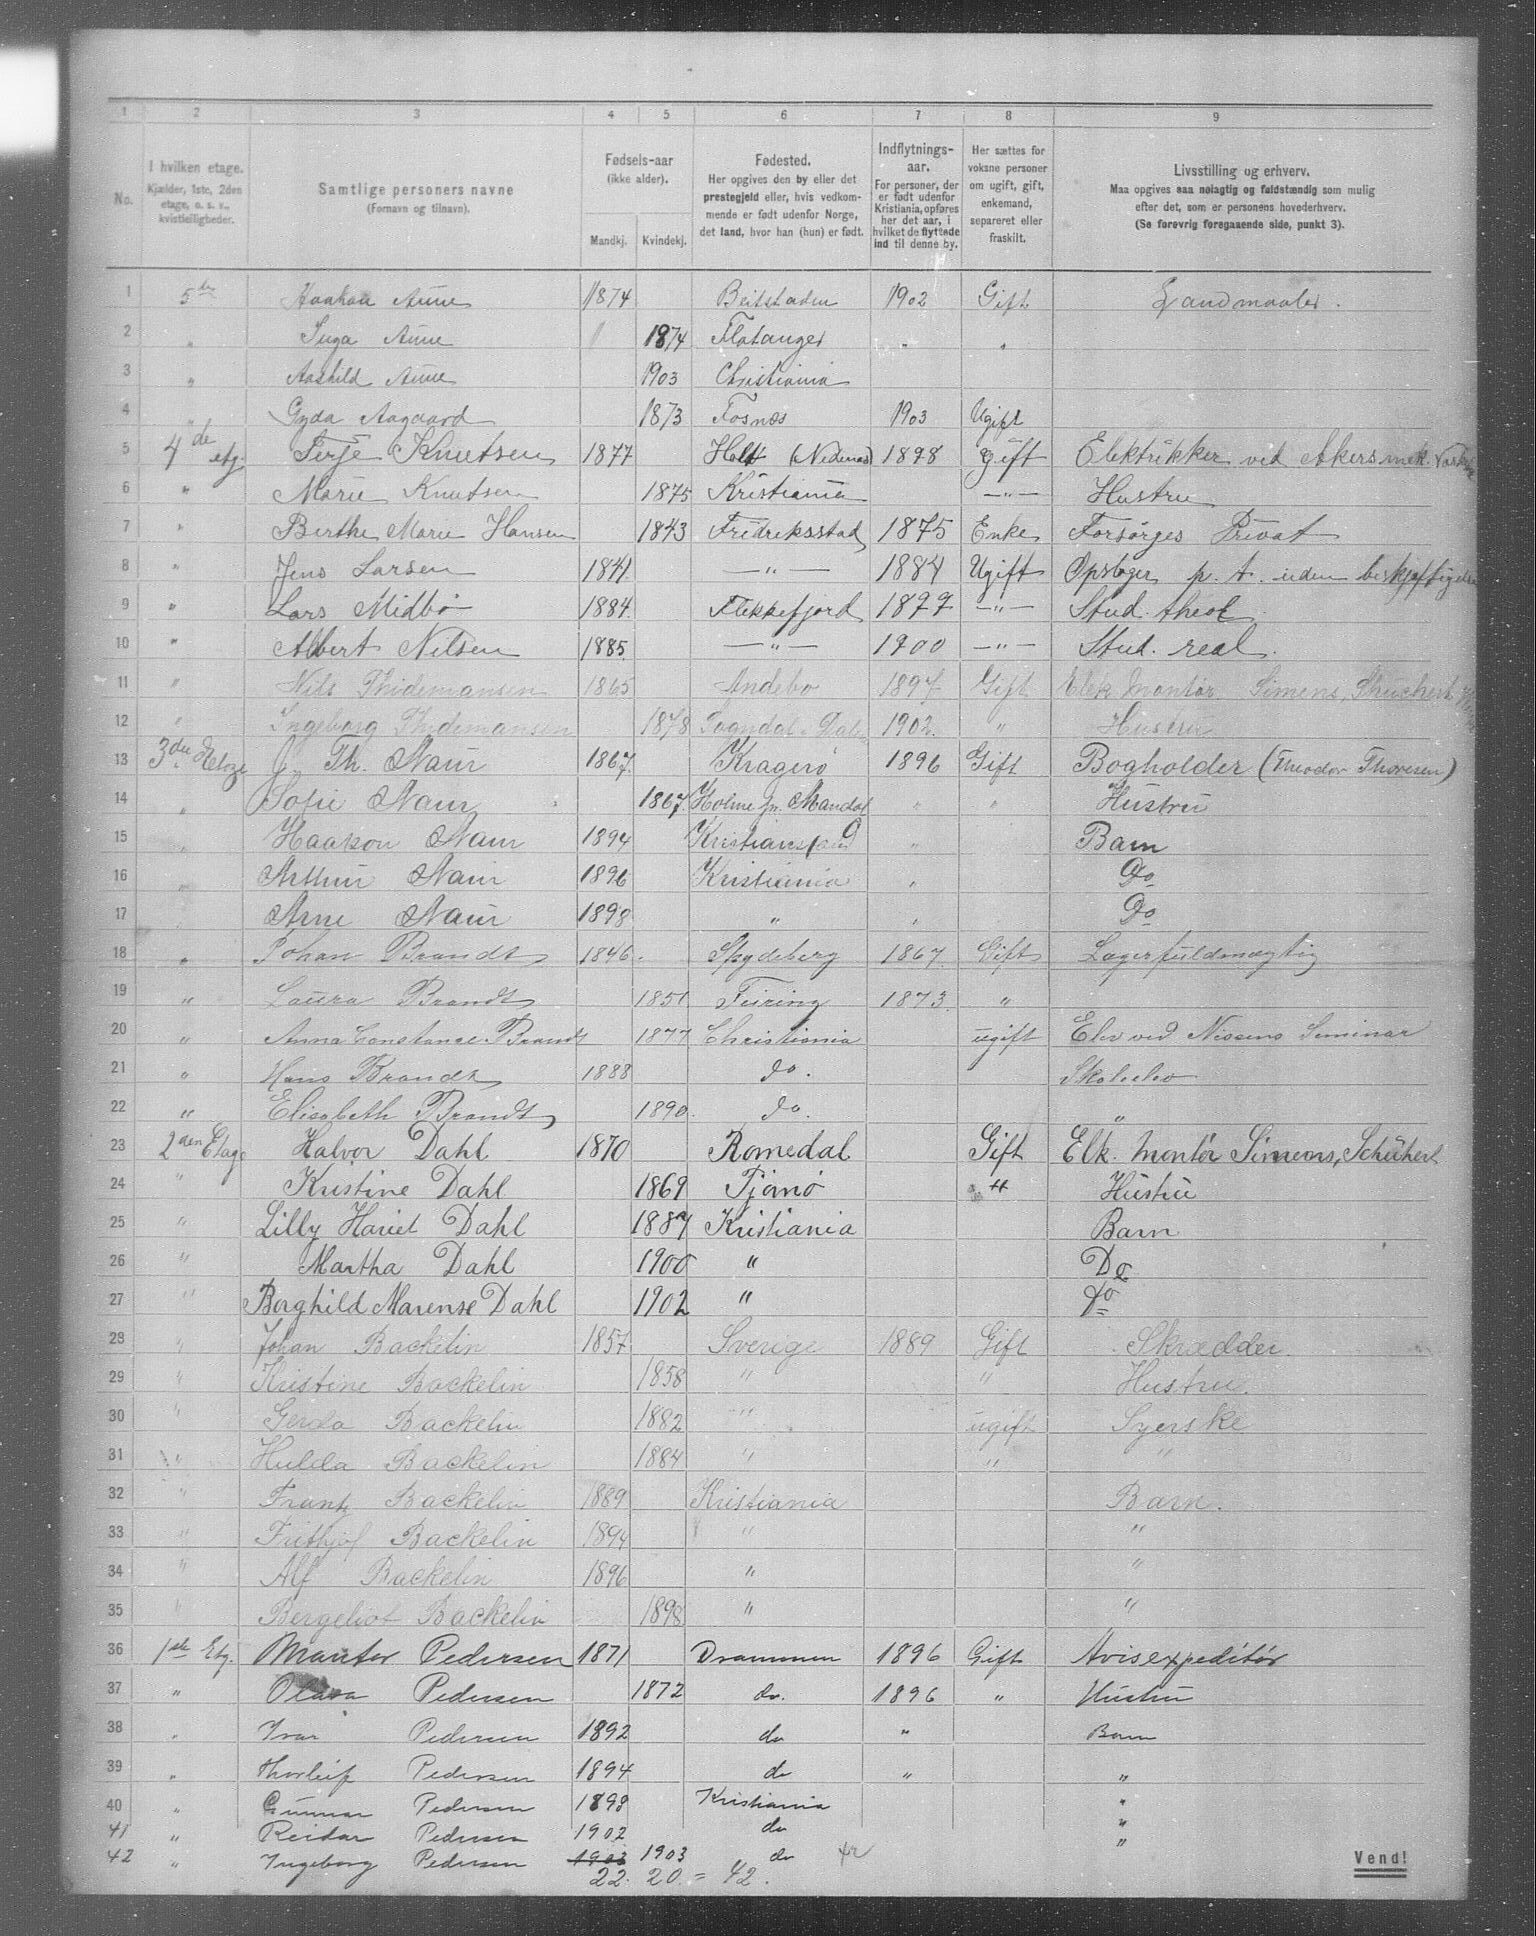 1 2 3 4 5 6 7 8 9
No. I hvilken etage. Kjælder, 1ste, 2den etage, o. s. v., kvistleiligheder. Samtlige personers navne (Fornavn og tilnavn). Fødsels-aar (ikke alder). Mandkj. Kvindekj. Fødested. Her opgives den by eller det prestegjeld eller, hvis vedkommende er født udenfor Norge, det land, hvor han (hun) er født. Indflytnings-aar. For personer, der er født udenfor Kristiania, opføres her det aar, i hvilket de flyttede ind til denne by. Her sættes for voksne personer om ugift, gift, enkemand, separeret eller fraskilt. Livsstilling og erhverv. Maa opgives saa nøiagtig og fuldstændig som mulig efter det, som er personens hovederhverv. (Se forøvrig foregaaende side, punkt 3).
1 5te Haakon Aune 1874 Beitstaden 1902 Gift Landmaaler.
2 " Inga Aune 1874 Flatanger " "
3 " Aashild Aune 1903 Christiania
4 " Gyda Aagaard 1873 Fosnæs 1903 Ugift
5 4de etg. Terje Knutsen 1877 Holt (Nedenæs) 1898 gift Elektrikker ved Akers mek.
6 " Marie Knutsen 1875 Kristiania —"— Hustru
7 " Berthe Marie Hansen 1843 Fredriksstad 1875 Enke Forsørges Privat
8 " Jens Larsen 1841 —"— 1884 Ugift Opsøger p. t. uden beskjæftigelse
9 " Lars Midbø 1884 Flekkefjord 1899 —"— Stud. theol
10 " Albert Nilsen 1885 —"— 1900 —"— Stud. real.
11 " Nils Thidemansen 1865 Andebo 1897 Gift Elek Montør. Simens, Shuchert
12 " Ingeborg Thidemansen 1878 Sogndal 1902 " Hustru
13 3die Etage J. Th. Naur 1867 Kragerø 1896 Gift Bogholder (Theodor Thoresen)
14 " Sofie Naur 1867 Holme pr. Mandal " " Hustru
15 " Haakon Naur 1894 Kristianssand " Barn
16 " Arthur Naur 1896 Kristiania " Do
17 " Arne Naur 1898 " " Do
18 " Johan Brandt 1846 Spydeberg 1867 Gift Lagerfuldmægtig
19 " Laura Brandt 1851 Feiring 1873 "
20 " Anna Constance Brandt 1877 Christiania ugift Elev ved Nissens Seminar
21 " Hans Brandt 1888 do. Skoleelev
22 " Elisabeth Brandt 1890 do. "
23 2den Etage Halvor Dahl 1870 Romedal Gift Elk. Montör Simens, Schühert
24 " Kristine Dahl 1869 Tjømø " Hustru
25 " Lilly Hariet Dahl 1887 Kristiania Barn
26 " Martha Dahl 1900 " Do
27 " Borghild Marense Dahl 1902 " Do
28 " Johan Backelin 1857 Sverige 1889 Gift Skrædder.
29 " Kristine Backelin 1858 " " Hustru.
30 " Gerda Backelin 1882 " ugift Syerske
31 " Hulda Backelin 1884 " " "
32 " Frantz Backelin 1889 Kristiania Barn.
33 " Frithjof Backelin 1894 " "
34 " Alf Backelin 1896 " "
35 " Bergeliot Backelin 1898 " "
36 1ste Etg. Mauter Pedersen 1871 Drammen 1896 Gift Avisexpeditør
37 " Olava Pedersen 1872 do. 1896 " Hustru
38 " Ivar Pedersen 1892 do " Barn
39 " Thorleif Pedersen 1894 do " "
40 " Gunnar Pedersen 1898 Kristiania "
41 " Reidar Pedersen 1902 do "
42 " Ingeborg Pedersen 1903 1903 do
22. 20. = 42.
Vend!